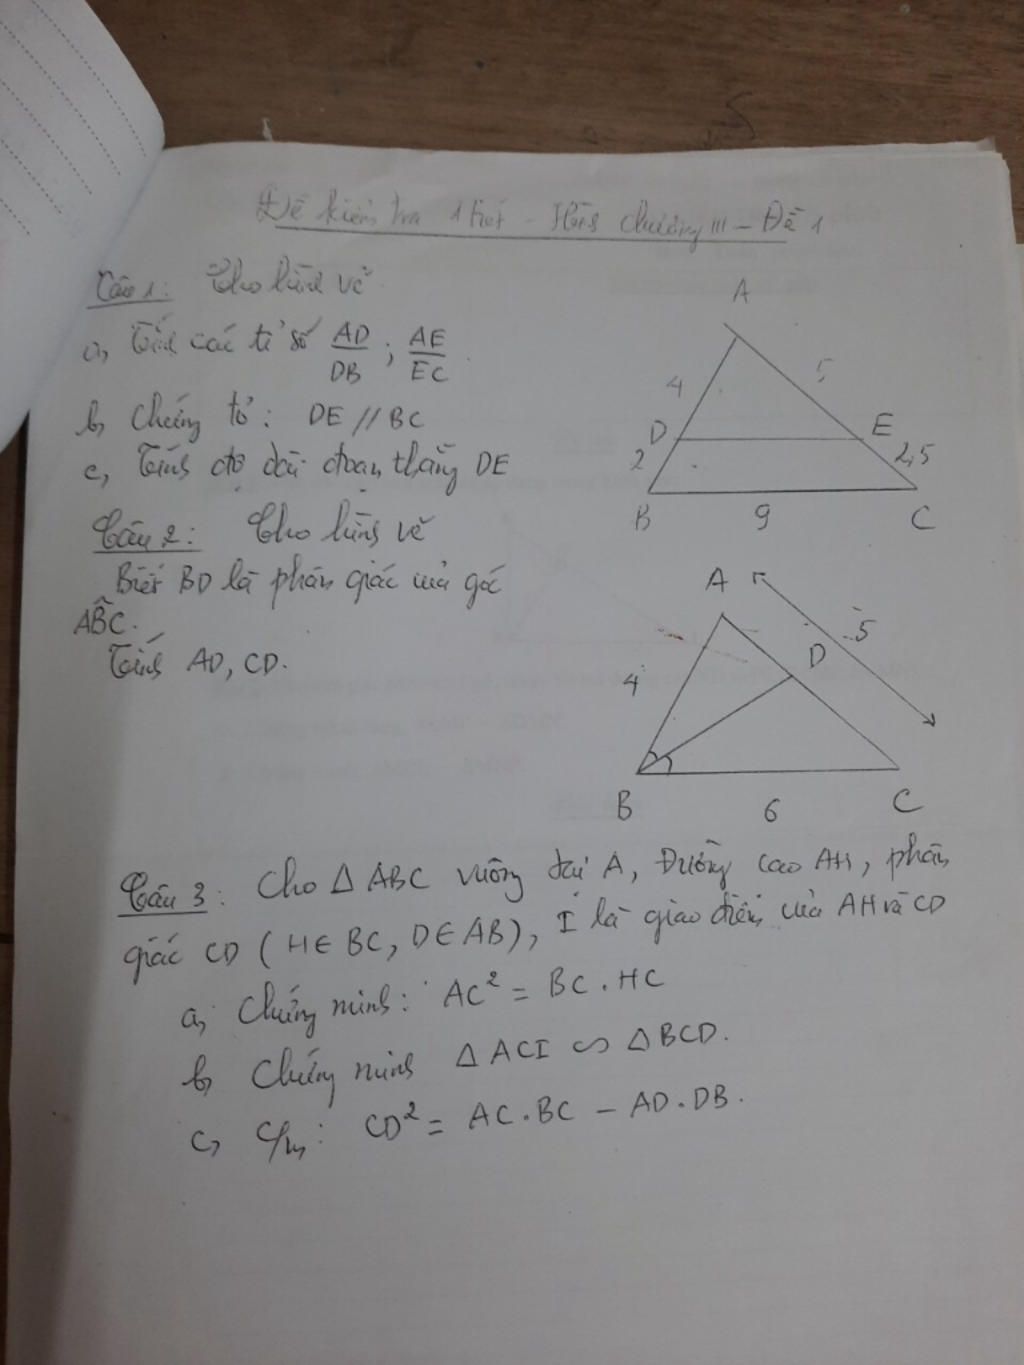 Đề kiểm tra 1 tiết - Hình chương III - Đề 1
Câu 1: Cho hình vẽ
a, Tính các tỉ số AD/DB ; AE/EC
b, Chứng tỏ : DE // BC
c, Tính độ dài đoạn thẳng DE
A
4
5
D
E
2
2,5
B
9
C
Câu 2: Cho hình vẽ
Biết BD là phân giác của góc
ABC.
Tính AD, CD.
A
5
D
4
B
6
C
Câu 3 : Cho Δ ABC vuông tại A, Đường cao AH, phân
giác CD ( H∈ BC, D∈ AB), I là giao điểm của AH và CD
a, Chứng minh : AC² = BC . HC
b, Chứng minh Δ ACI ∽ Δ BCD.
c, C/m : CD² = AC . BC – AD . DB.